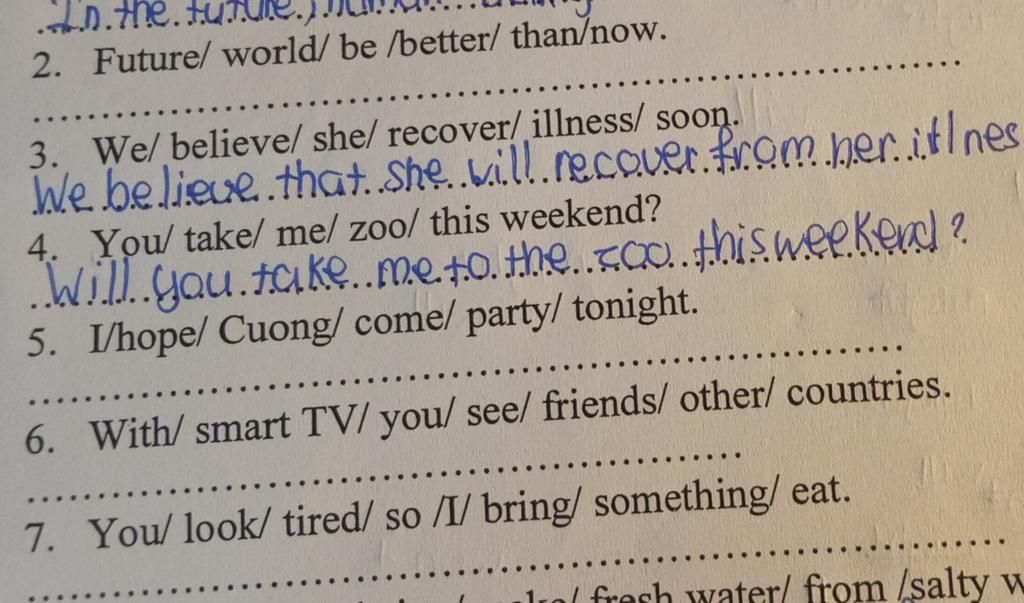 In the future,
2. Future/ world/ be /better/ than/now.
3. We/ believe/ she/ recover/ illness/ soon.
We believe that she will recover from her illnes
4. You/ take/ me/ zoo/ this weekend?
Will you take me to the zoo this weekend?
5. I/hope/ Cuong/ come/ party/ tonight.
6. With/ smart TV/ you/ see/ friends/ other/ countries.
7. You/ look/ tired/ so /I/ bring/ something/ eat.
fresh water/ from /salty w